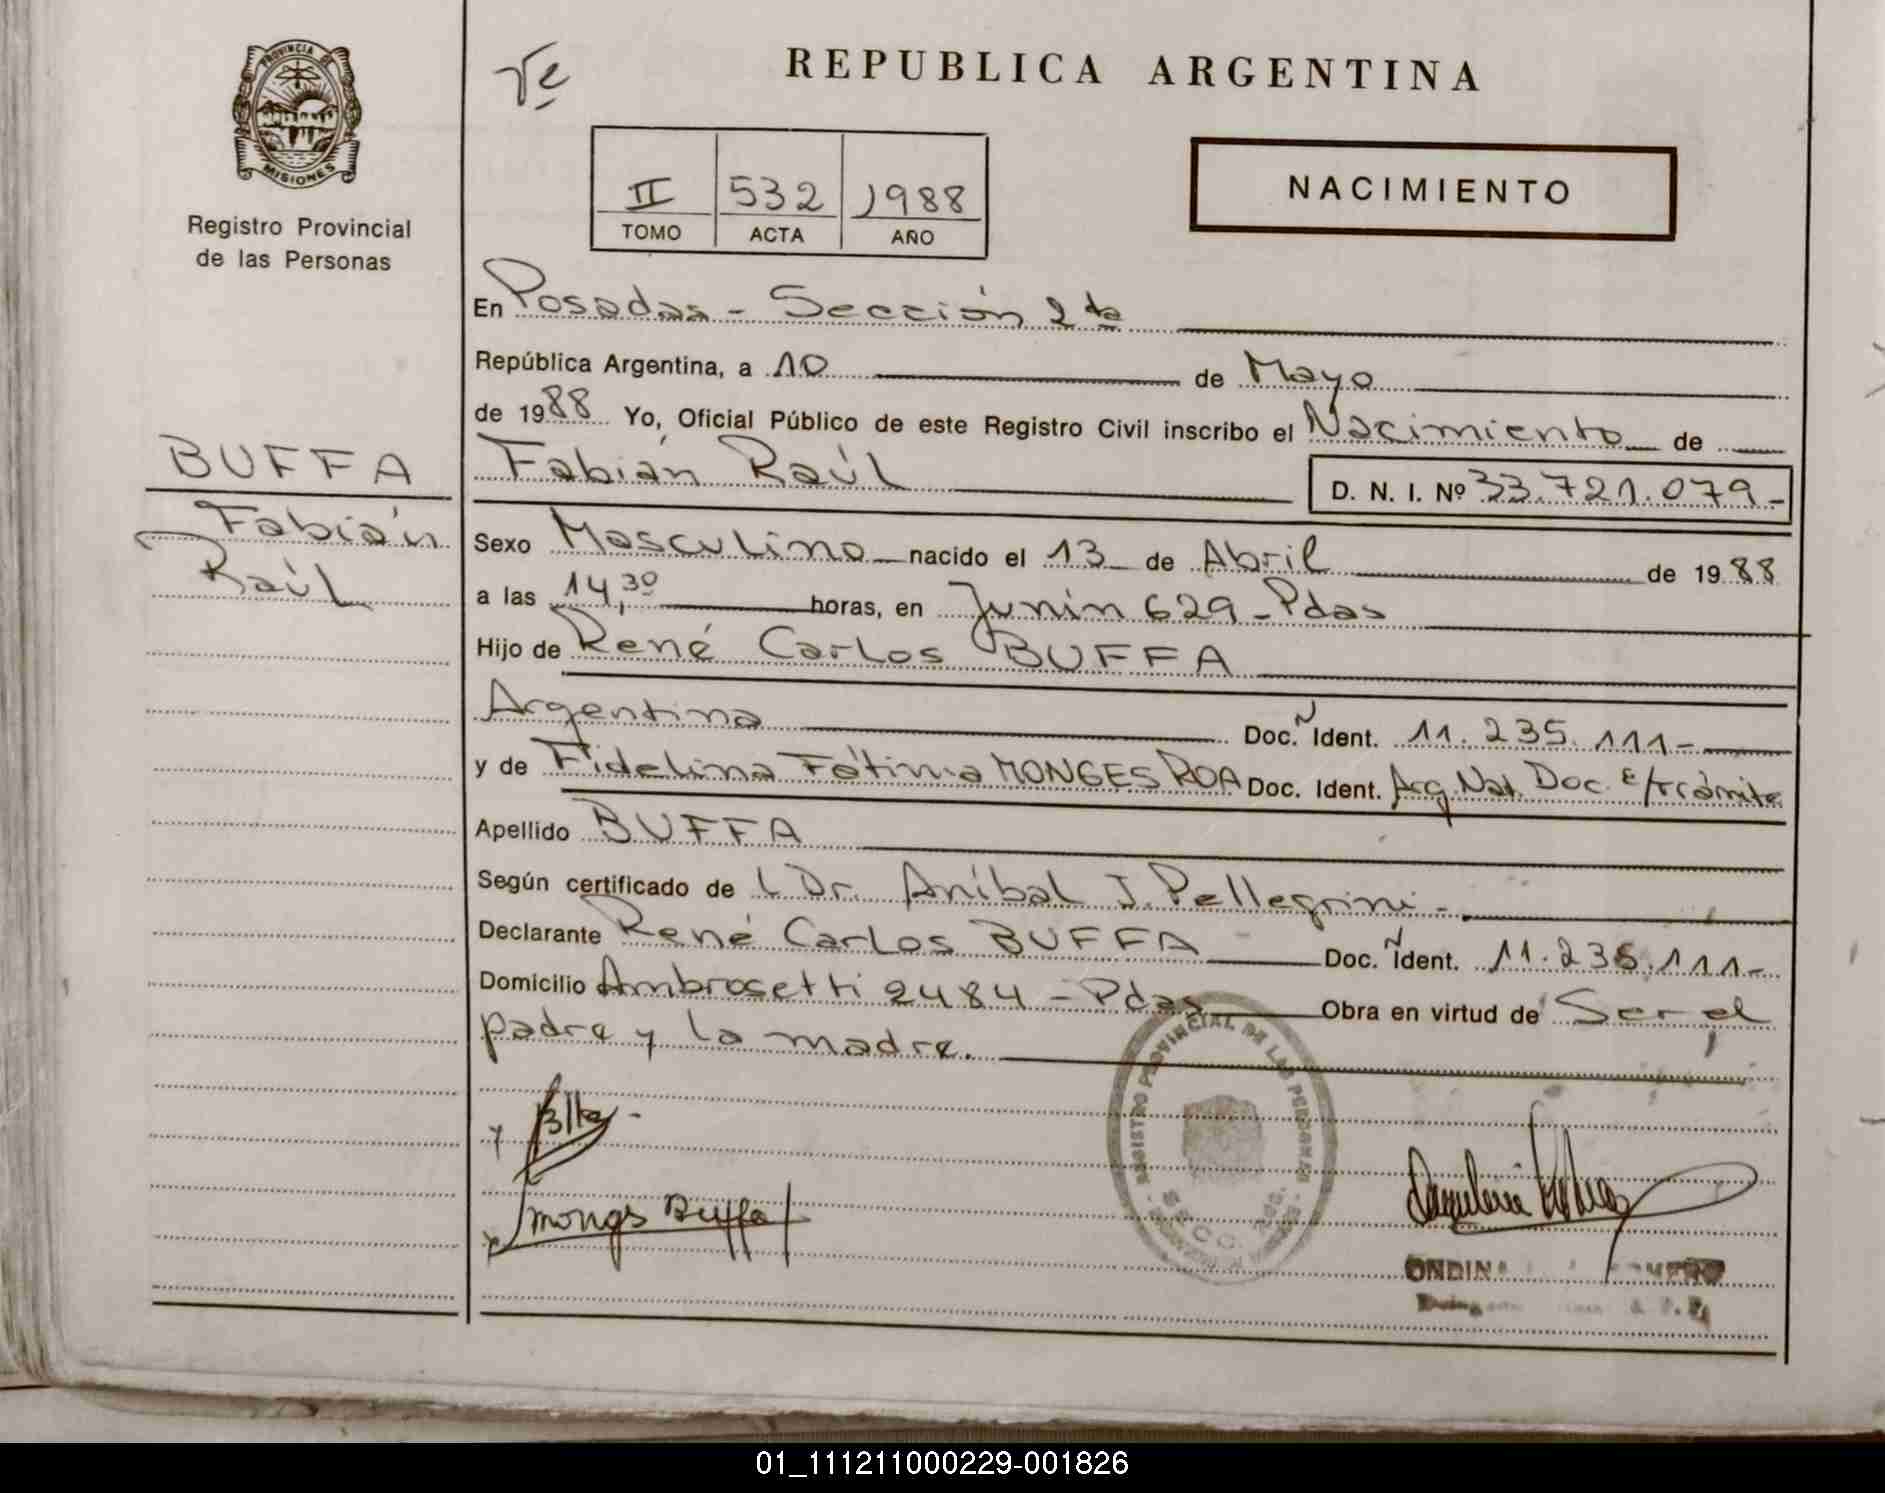 PROVINCIA DE
MISIONES
Registro Provincial
de las Personas
BUFFA
Fabián
Raúl
REPUBLICA ARGENTINA
II 532 1988
TOMO ACTA AÑO
NACIMIENTO
En Posadas - Sección 2da
República Argentina, a 10 de Mayo
de 1988 Yo, Oficial Público de este Registro Civil inscribo el Nacimiento de
Fabián Raúl D. N. I. Nº 33.721.079-
Sexo Masculino nacido el 13 de Abril de 1988
a las 14,30 horas, en Junín 629 - Pdas
Hijo de René Carlos BUFFA
Argentina Doc. Ident. 11.235.111-
y de Fidelina Fátima MONGES ROA Doc. Ident. Arg. Nat. Doc. E/trámite
Apellido BUFFA
Según certificado de L Dr. Aníbal J. Pellegrini -
Declarante René Carlos BUFFA Doc. Ident. 11.235.111-
Domicilio Ambrosetti 2484 - Pdas Obra en virtud de Ser el
padre y la madre.
REGISTRO PROVINCIAL DE LAS PERSONAS
SECC.
Monges Buffa
ONDINA
01_111211000229-001826